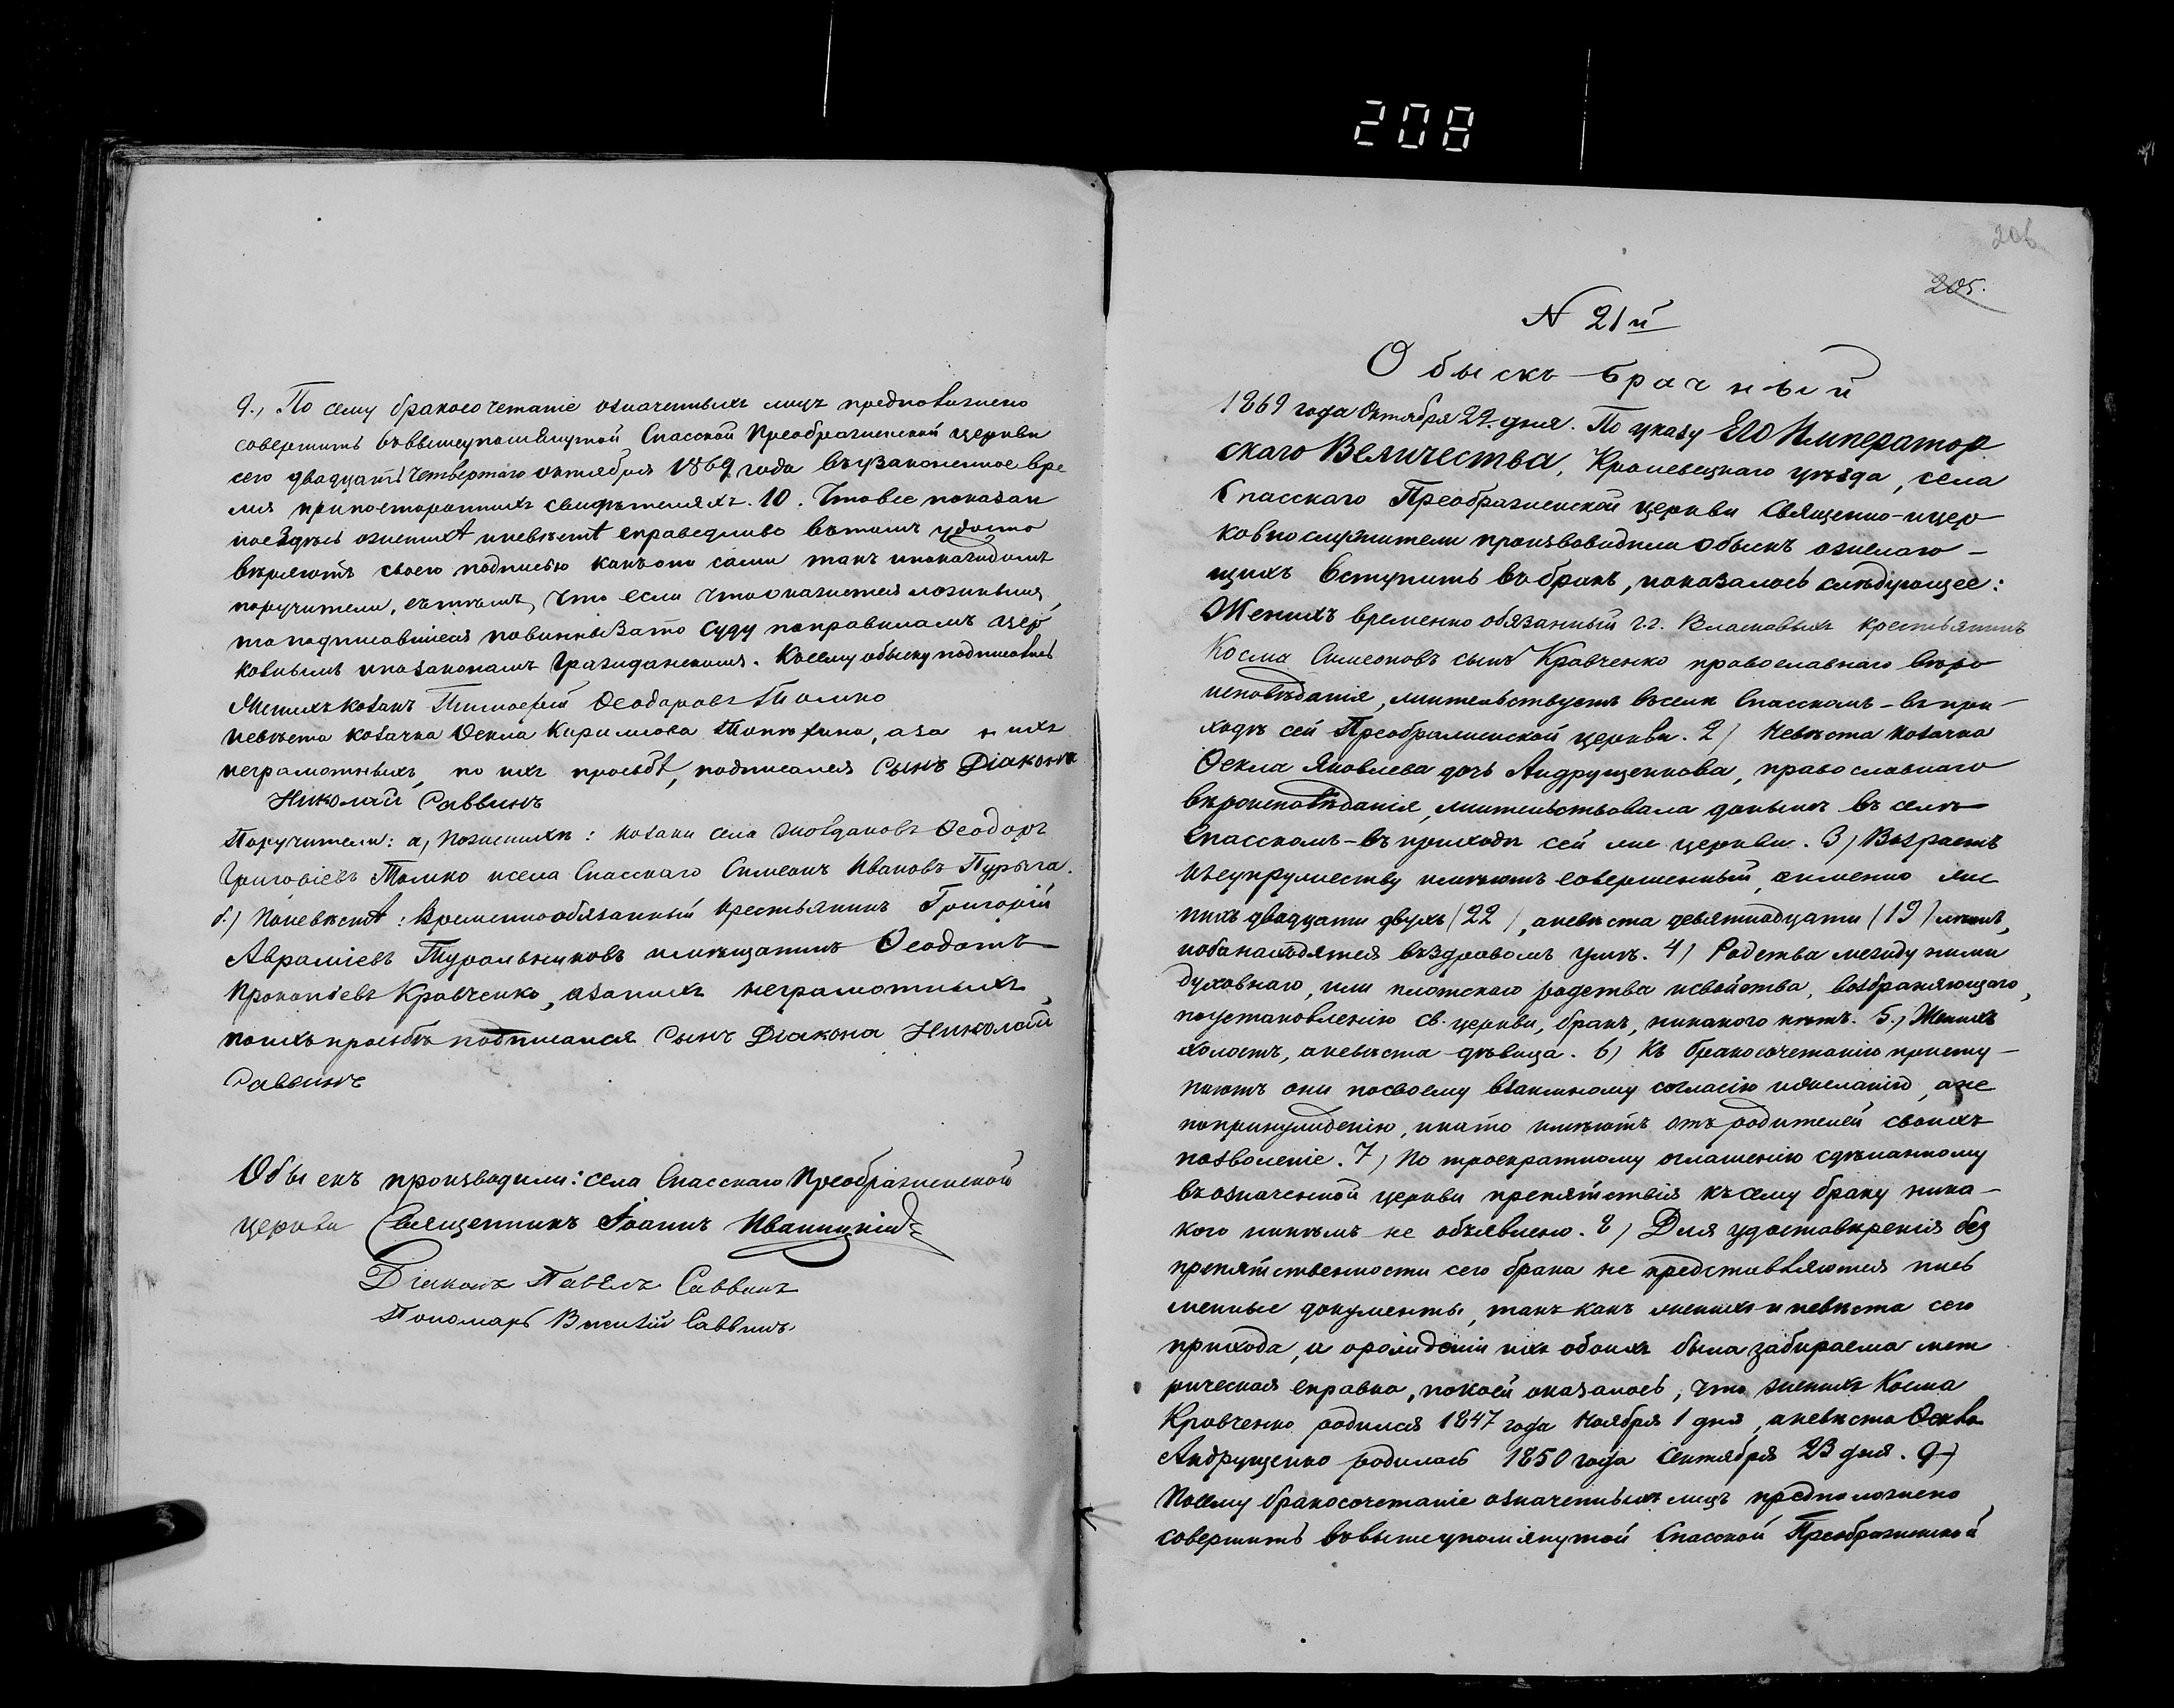 208
9., По сему бракосочетаніе означенныхъ лицъ предположено
совершить въвышеупомянутой Спасской Преображенской церкви
сего двадцать четвертаго октября 1869 года въузаконенное вре
мя припостороннихъ свидѣтеляхъ. 10. Чтовсе показан
ноездѣсь оженихѣ иневѣстѣ справедливо вътомъ удосто
вѣряютъ своею подписью какъони сами такъ ипокаждомъ
поручители, сътѣмъ, что если чтоокажется ложнымъ,
топодписавшіеся повинныЗато Суду поправиламъ цер
ковнымъ ипозаконамъ Гражданскимъ. Ксему обыску подписались
Женихъ козакъ Тимоѳей Ѳеодоровъ Толмко
невѣста козачка Ѳекла Кирилова, аза нихъ
неграмотныхъ, по ихъ просьбѣ, подписался Сынъ Діакона
Николай Саввинъ
Поручители: а, Поженихѣ: козаки села Ѳеодоръ
Григоріевъ Толмко исела Спасскаго Симеонъ Ивановъ Пурыга.
б.) Поневѣстѣ: временнообязанный крестьянинъ Григорій
Авраміевъ имѣщанинъ Ѳеодотъ
Прокопіевъ Кравченко, азанихъ неграмотныхъ,
поихъпросьбѣ подписался Сынъ Діакона Николай
Саввинъ
Обыскъ производили: села Спасскаго Преображенской
церкви Священникъ Іоаннъ Иваницкій
Діаконъ Павелъ Саввинъ
Пономарь Саввинъ
206
205.
N 21й
Обыскъ брачный
1869 года Октября 22 дня. По указу Его Император
скаго Величества, Кролевецкаго уѣзда, села
Спасскаго Преображенской церкви Священно-ицер
ковнослужители производили обыскъ ожелаю-
щихъ вступить вбракъ, иоказалось слѣдующее:
Женихъ временно обязанный г.г. Власовыхъ крестьянинъ
Косма Симеоновъ сынъ Кравченко православнаго вѣро
исповѣданія, жительствуетъ вселѣ Спасскомъ-вѣпри-
ходѣ сей Преображенской церкви. 2) Невѣста козачка
Ѳекла Яковлева дочь Андрущенкова, православнаго
вѣроисповѣданія, жительствовала донынѣ въ селѣ
Спасскомъ-въ приходѣ сей же церкви. 3) Возрастъ
къ супружеству имѣютъ совершенный, аименно же
нихъ двадцати двухъ (22), аневѣста девятнадцати (19) лѣтъ,
иобанаходятся въздравомъ умѣ. 4) Родства между ними
духовнаго, или плотскаго родства исвойства, возбраняющаго,
поустановленію св. церкви, бракъ, никакого нѣтъ. 5.) Женихъ
холостъ, аневѣста дѣвица. 6) Къ бракосочетанію присту-
паютъ они посвоему взаимному согласію ижеланію, ане
попринужденію, инато имѣютъ отъ родителей своихъ
позволеніе. 7) По троекратному оглашенію сдѣланному
въозначенной церкви препятствія късему браку ника-
кого никѣмъ не объявлено. 8) Для удостовѣренія без
препятственности сего брака не представляются пись
менные документы, такъ какъ женихъ и невѣста сего
прихода, и орожденіи ихъ обоихъ была забираема мет
рическая справка, покоей оказалось, что женихъ Косма
Кравченко родился 1847 года Ноября 1 дня, аневѣста Ѳекла
Андрущенко родилась 1850 года Сентября 23 дня. 9)
Посему бракосочетаніе означенныхъ лицъ предположено
совершить въвышеупомянутой Спасской Преображенской